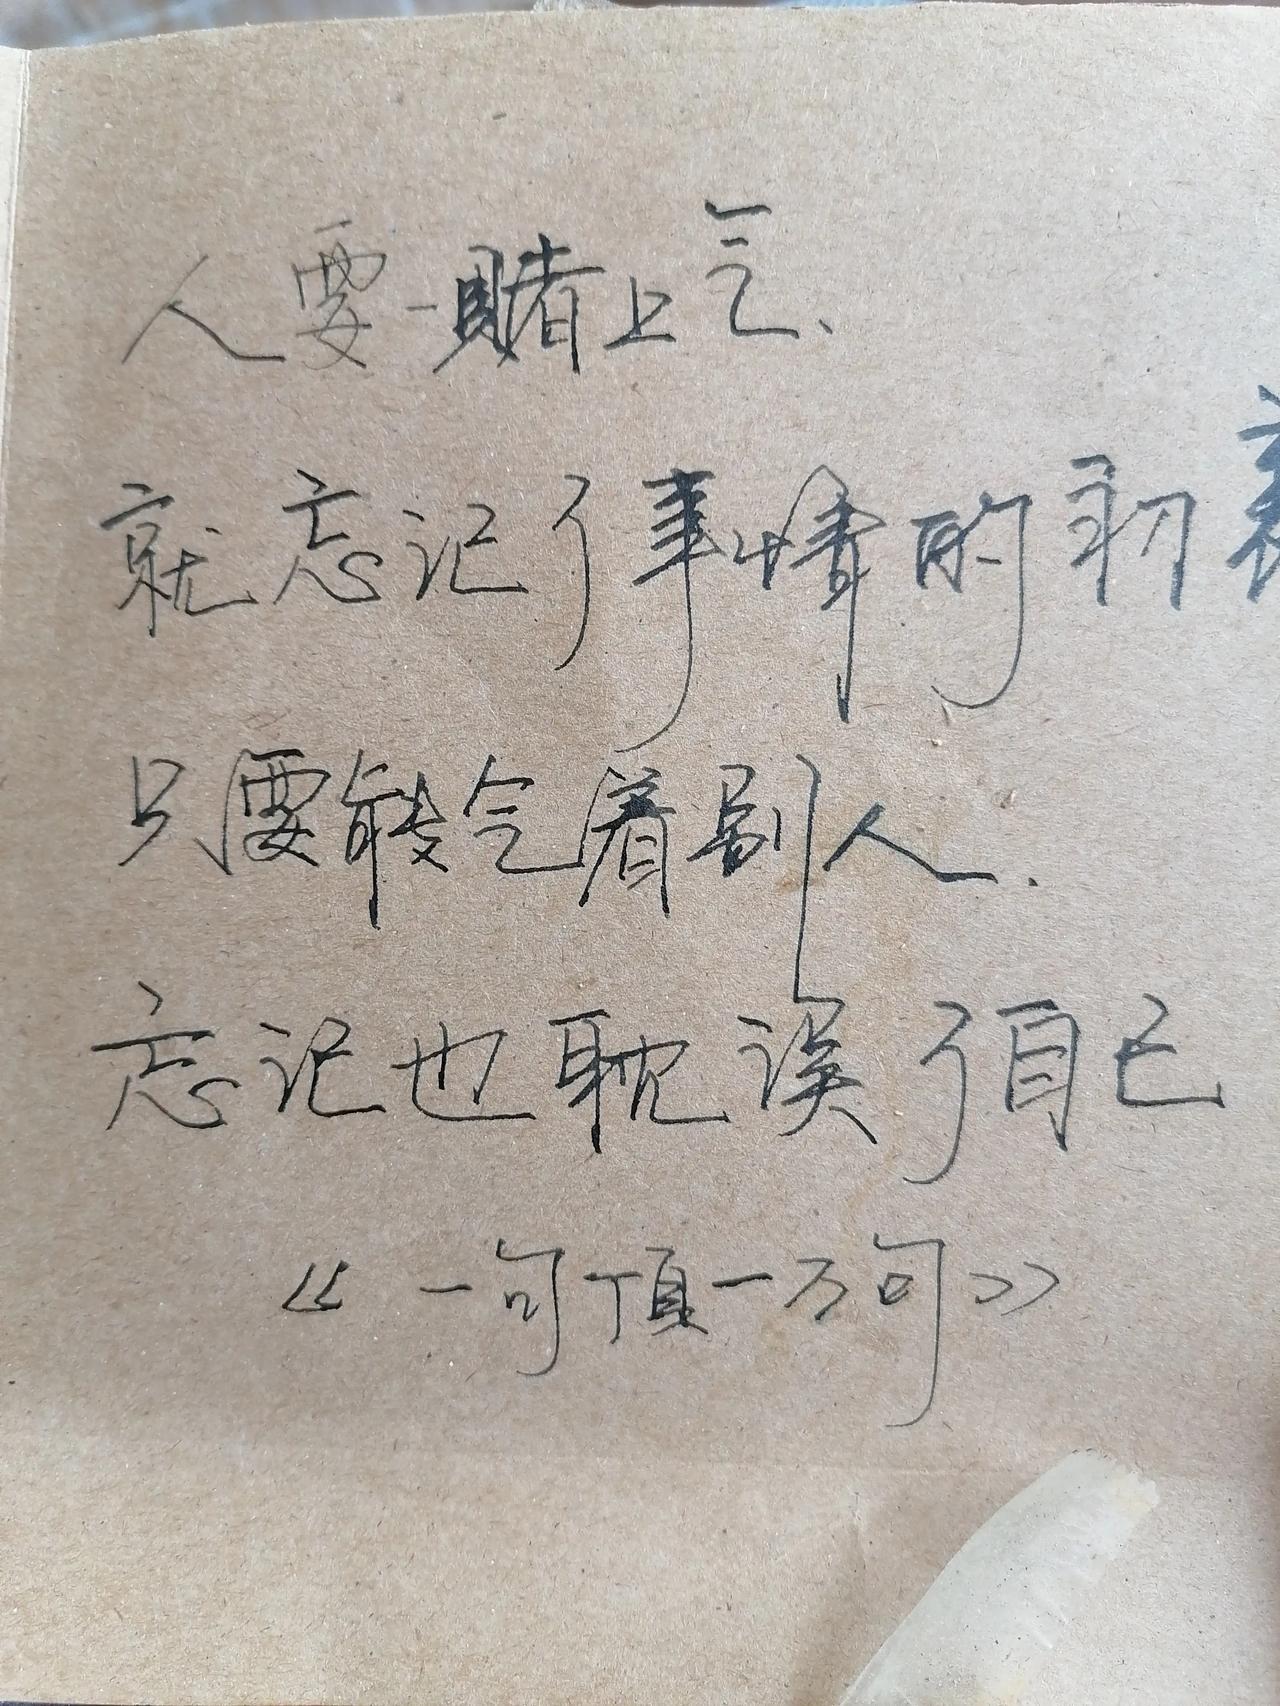 人要一赌上气、
就忘记了事情的初衷
只要能气着别人.
忘记也耽误了自己
《一句顶一万句》